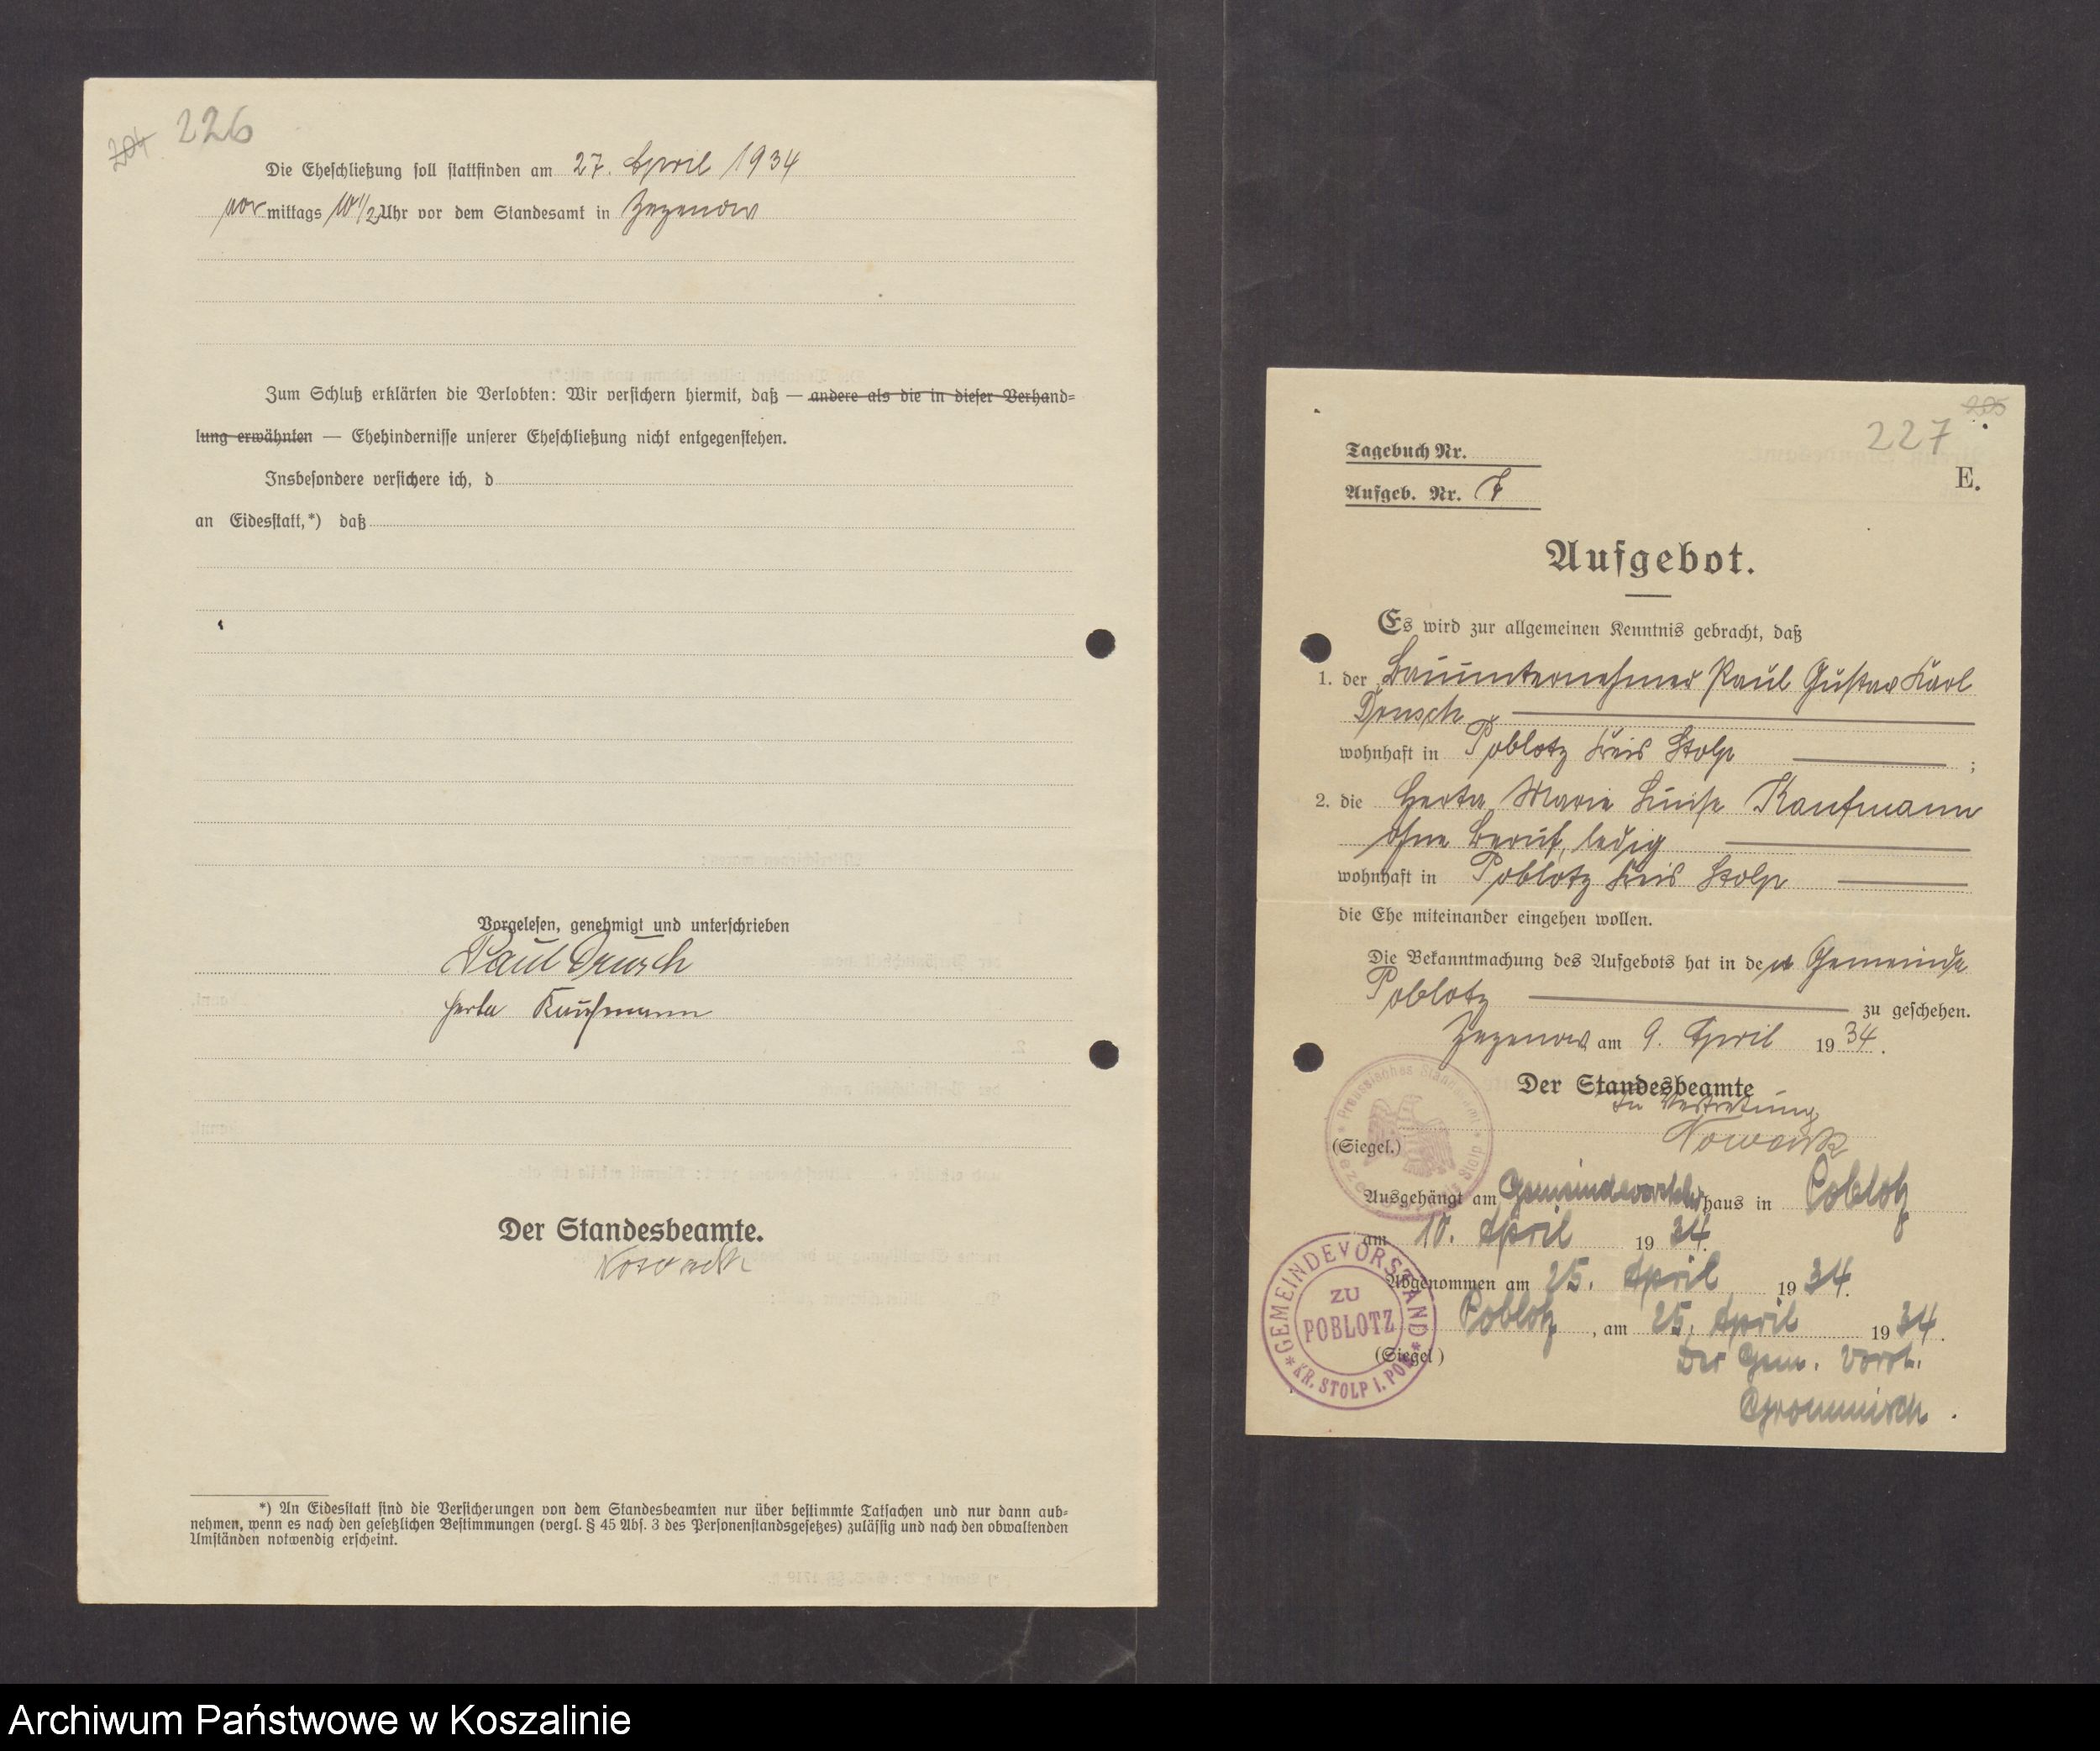 204 226
Die Eheschließung soll stattfinden am 27. April 1934
vor mittags 10 1/2 Uhr vor dem Standesamt in Zezenow
Zum Schluß erklärten die Verlobten: Wir versichern hiermit, daß — andere als die in dieser Verhand-
lung erwähnten — Ehehindernisse unserer Eheschließung nicht entgegenstehen.
Insbesondere versichere ich, d
an Eidesstatt,*) daß
Vorgelesen, genehmigt und unterschrieben
Paul Drusch
Herta Kaufmann
Der Standesbeamte.
Nowack
*) An Eidesstatt sind die Versicherungen von dem Standesbeamten nur über bestimmte Tatsachen und nur dann aub-
nehmen, wenn es nach den gesetzlichen Bestimmungen (vergl. § 45 Abs. 3 des Personenstandsgesetzes) zulässig und nach den obwaltenden
Umständen notwendig erscheint.
205
227
Tagebuch Nr.
E.
Aufgeb. Nr. 7
Aufgebot.
Es wird zur allgemeinen Kenntnis gebracht, daß
1. der Bauunternehmer Paul Gustav Karl
Drusch
wohnhaft in Poblotz Kreis Stolp ;
2. die Herta Marie Luise Kaufmann
ohne Beruf, ledig
wohnhaft in Poblotz Kreis Stolp
die Ehe miteinander eingehen wollen.
Die Bekanntmachung des Aufgebots hat in der Gemeinde
Poblotz zu geschehen.
Zezenow am 9. April 1934.
Der Standesbeamte
In Vertretung
Nowack
Preussisches Standesamt
(Siegel.)
Ausgehängt am Gemeindevorsteherhaus in Poblotz
am 10. April 1934.
Abgenommen am 25. April 1934.
Poblotz, am 25. April 1934.
(Siegel)
GEMEINDEVORSTAND
ZU
POBLOTZ
KR. STOLP I. POM
Der Gem. Vorst.
Archiwum Państwowe w Koszalinie